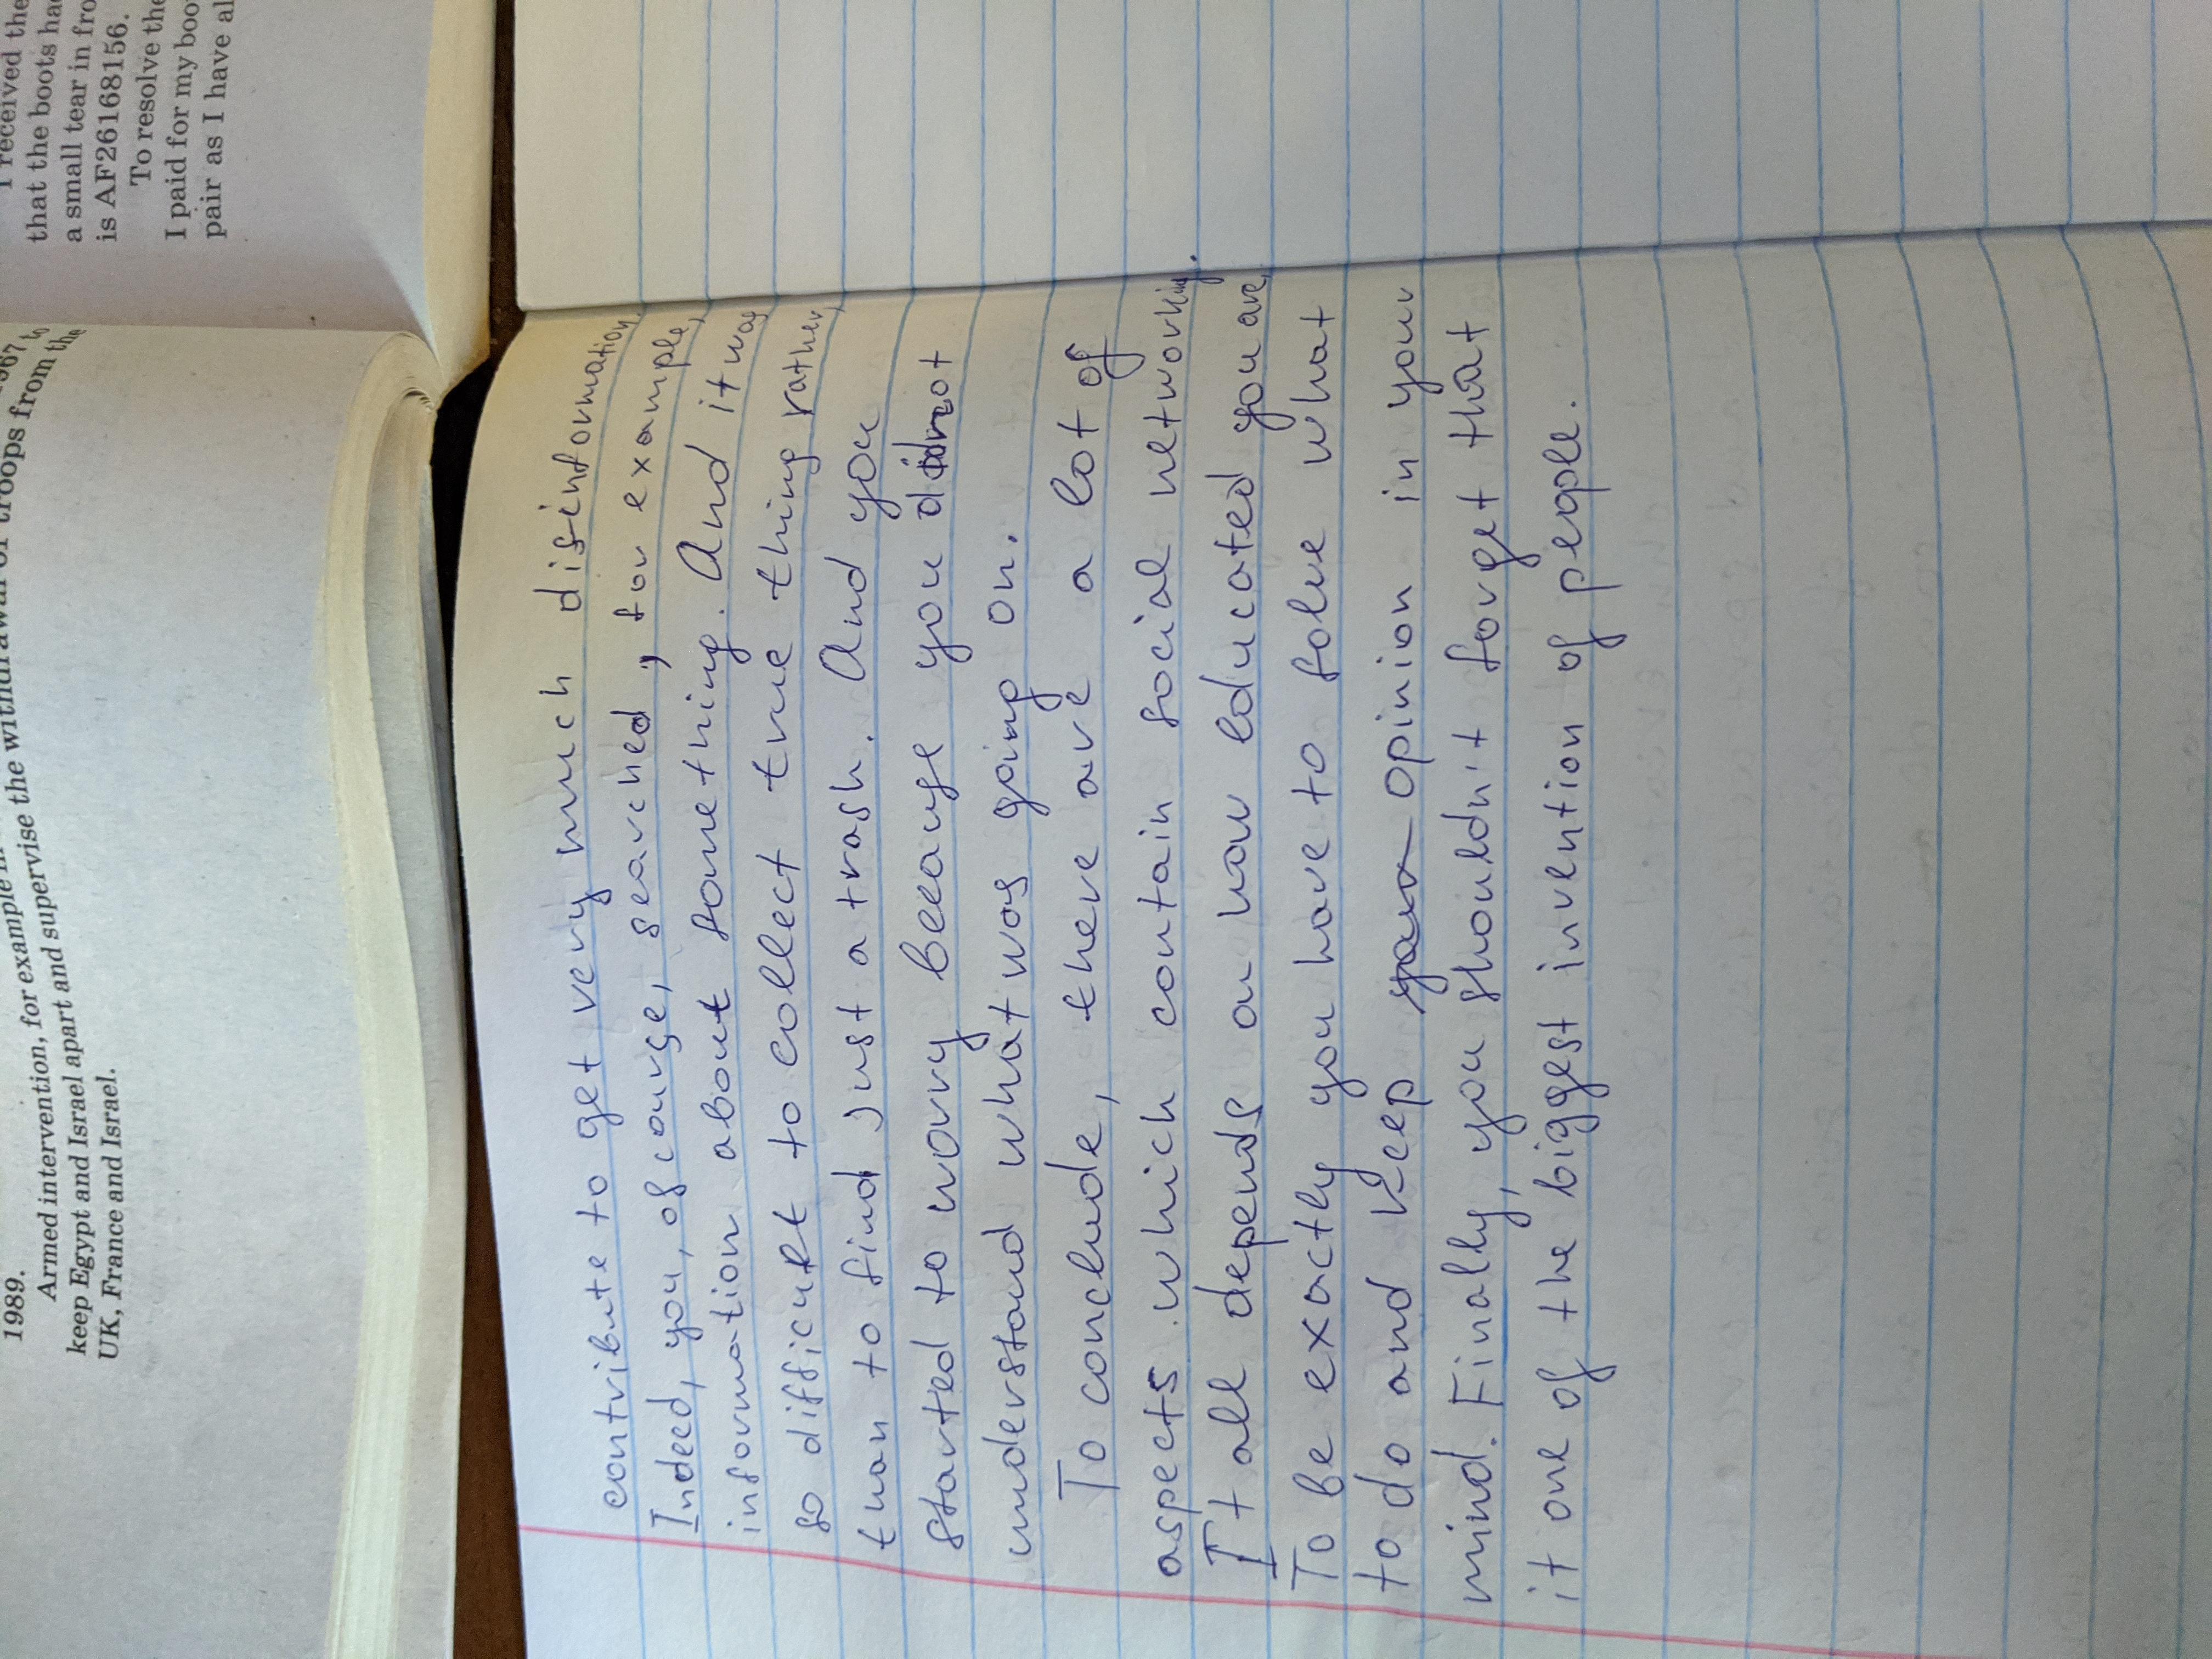 1989.
Armed intervention, for example in
keep Egypt and Israel apart and supervise the withdrawal of troops from the
UK, France and Israel.
I received the
that the boots had
a small tear in fro
is AF26168156.
To resolve the
I paid for my boo
pair as I have al
contribute to get very much disinformation.
Indeed, you, of course, searched, for example,
information about something. And it was
so difficult to collect true thing rather,
than to find just a trash. And you
started to worry because you did not
understand what was going on.
To conclude, there are a lot of
aspects which contain social networking.
It all depends on how educated you are.
To be exactly you have to solve what
to do and keep your opinion in your
mind. Finally, you shouldn't forget that
it one of the biggest invention of people.